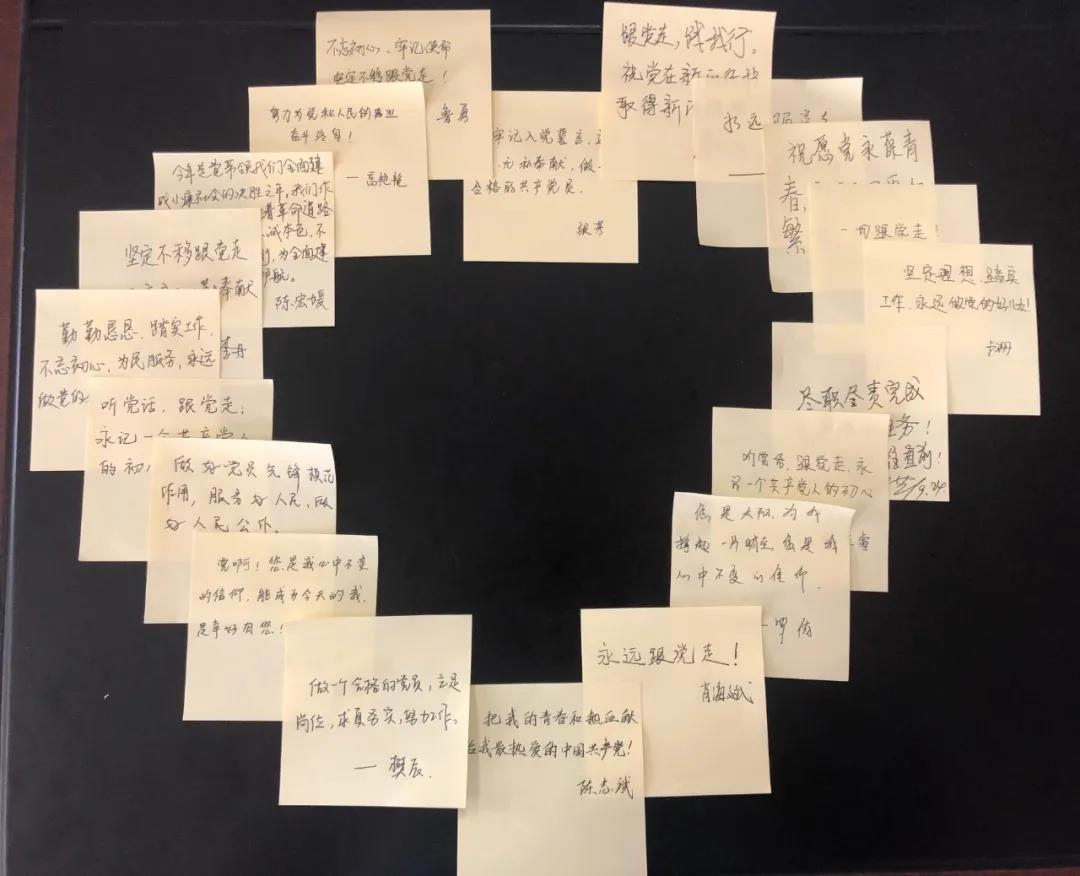 不忘初心、牢记使命
坚定不移跟党走！
鲁勇
努力为党和人民的事业
奋斗终身！
—高艳艳
今年是党带领我们全面建
成小康社会的决胜之年，我们作
着革命道路
诚本色，不
为全面建
护航。
陈宏媛
坚定不移跟党走
奉献
李丹
勤勤恳恳，踏实工作，
不忘初心，为民服务，永远
做党的
听党话，跟党走；
永记一个共产党人
的初
做好党员先锋模范
作用，服务好人民，做
好人民公仆。
党啊！您是我心中不变
的信仰，能成为今天的我，
是幸好有您！
做一个合格的党员，立足
岗位，求真务实，努力工作。
— 樊辰
把我的青春和热血献
给我最热爱的中国共产党！
陈志斌
永远跟党走！
肖海斌
您是太阳，为我
撑起一片晴空，您是我
心中不变的信仰
罗倩
听党话，跟党走，永
一个共产党人的初心
尽职尽责完成
任务！
坚定理想，踏实
工作，永远做党的好儿女！
一切跟党走！
祝愿党永葆青
春，
繁
永远跟党走
跟党走，践我行。
祝党在新的
取得新
牢记入党誓言，
无私奉献，做
合格的共产党员。
张芳